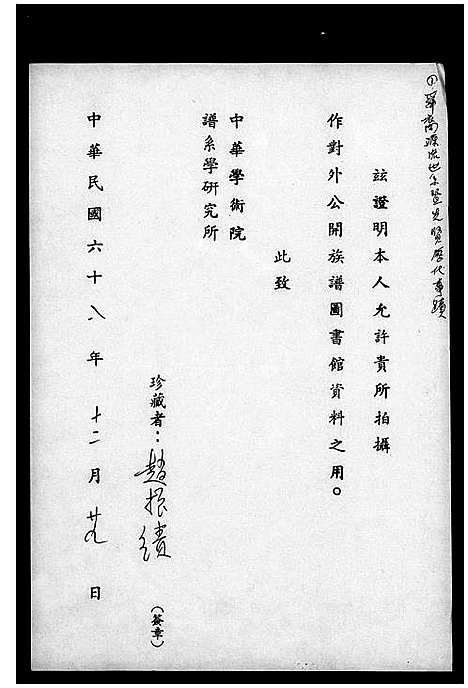 ①羋喬源流世系暨先賢歷代事蹟
茲證明本人允許貴所拍攝
作對外公開族譜圖書館資料之用。
此致
中華學術院
譜系學研究所
珍藏者：趙振績
（簽章）
中華民國六十八年十二月廿九日